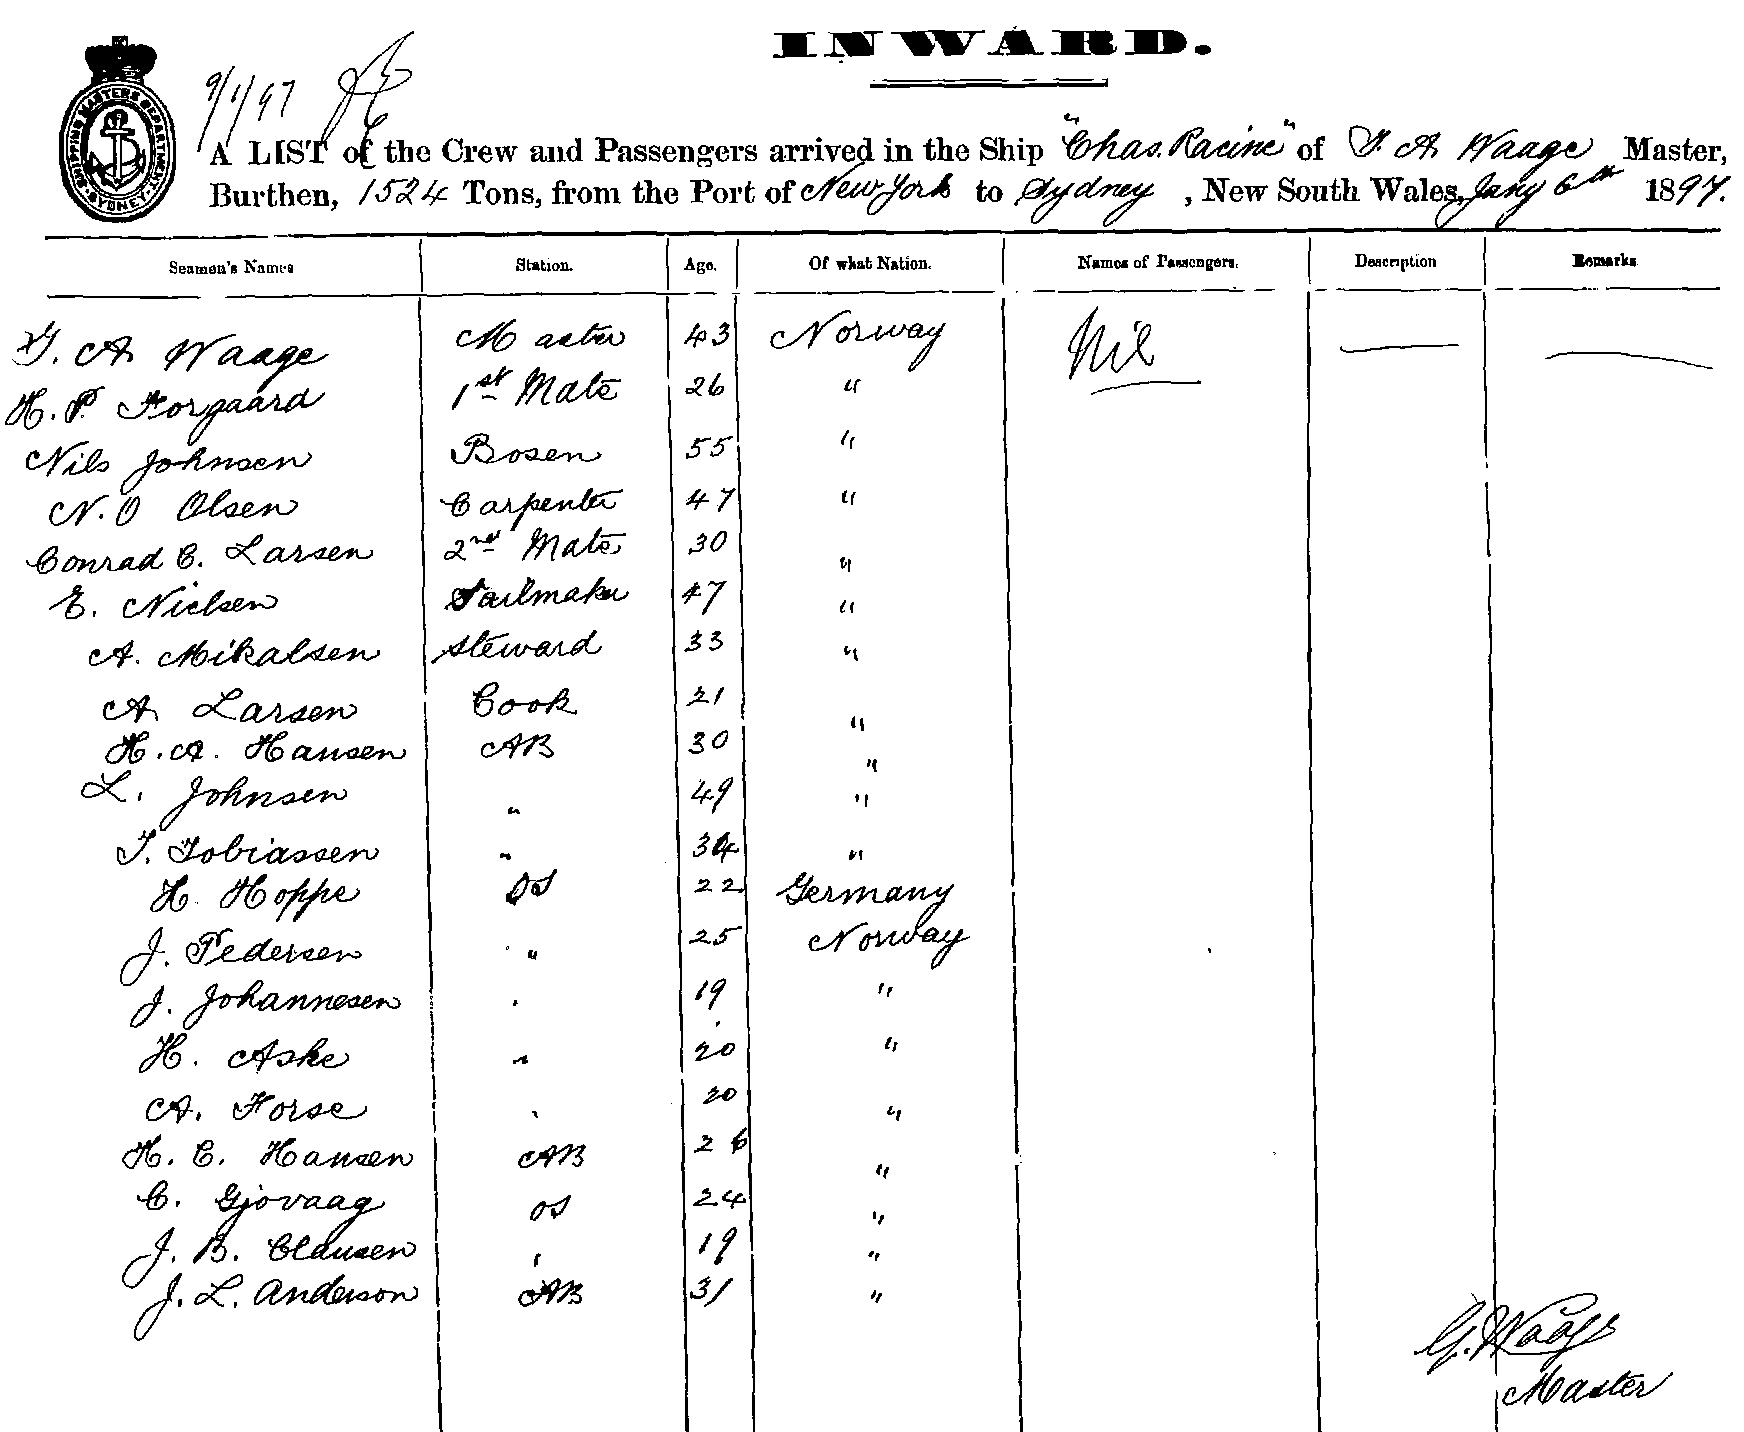 INWARD.
SHIPPING MASTERS DEPARTMENT. SYDNEY
9/1/97
A LIST of the Crew and Passengers arrived in the Ship "Chas. Racine" of G. A Waage Master,
Burthen, 1524 Tons, from the Port of New York to Sydney, New South Wales, Jany 6th 1897.
Seamen's Names Station. Age. Of what Nation. Names of Passengers. Description Remarks
G. A Waage Master 43 Norway Nil
H. P. Forgaard 1st Mate 26 "
Nils Johnsen Bosen 55 "
N. O Olsen Carpenter 47 "
Conrad C. Larsen 2nd Mate 30 "
E. Nielsen Sailmaker 47 "
A. Mikalsen Steward 33 "
A Larsen Cook 21 "
H. A. Hansen AB 30 "
L. Johnsen " 49 "
T. Tobiassen " 34 "
H. Hoppe OS 22 Germany
J. Pedersen " 25 Norway
J. Johannesen " 19 "
H. Aske " 20 "
A. Forse " 20 "
H. C. Hansen AB 26 "
C. Gjovaag OS 24 "
J. B. Clausen " 19 "
J. L. Anderson AB 31 "
G. Waage
Master